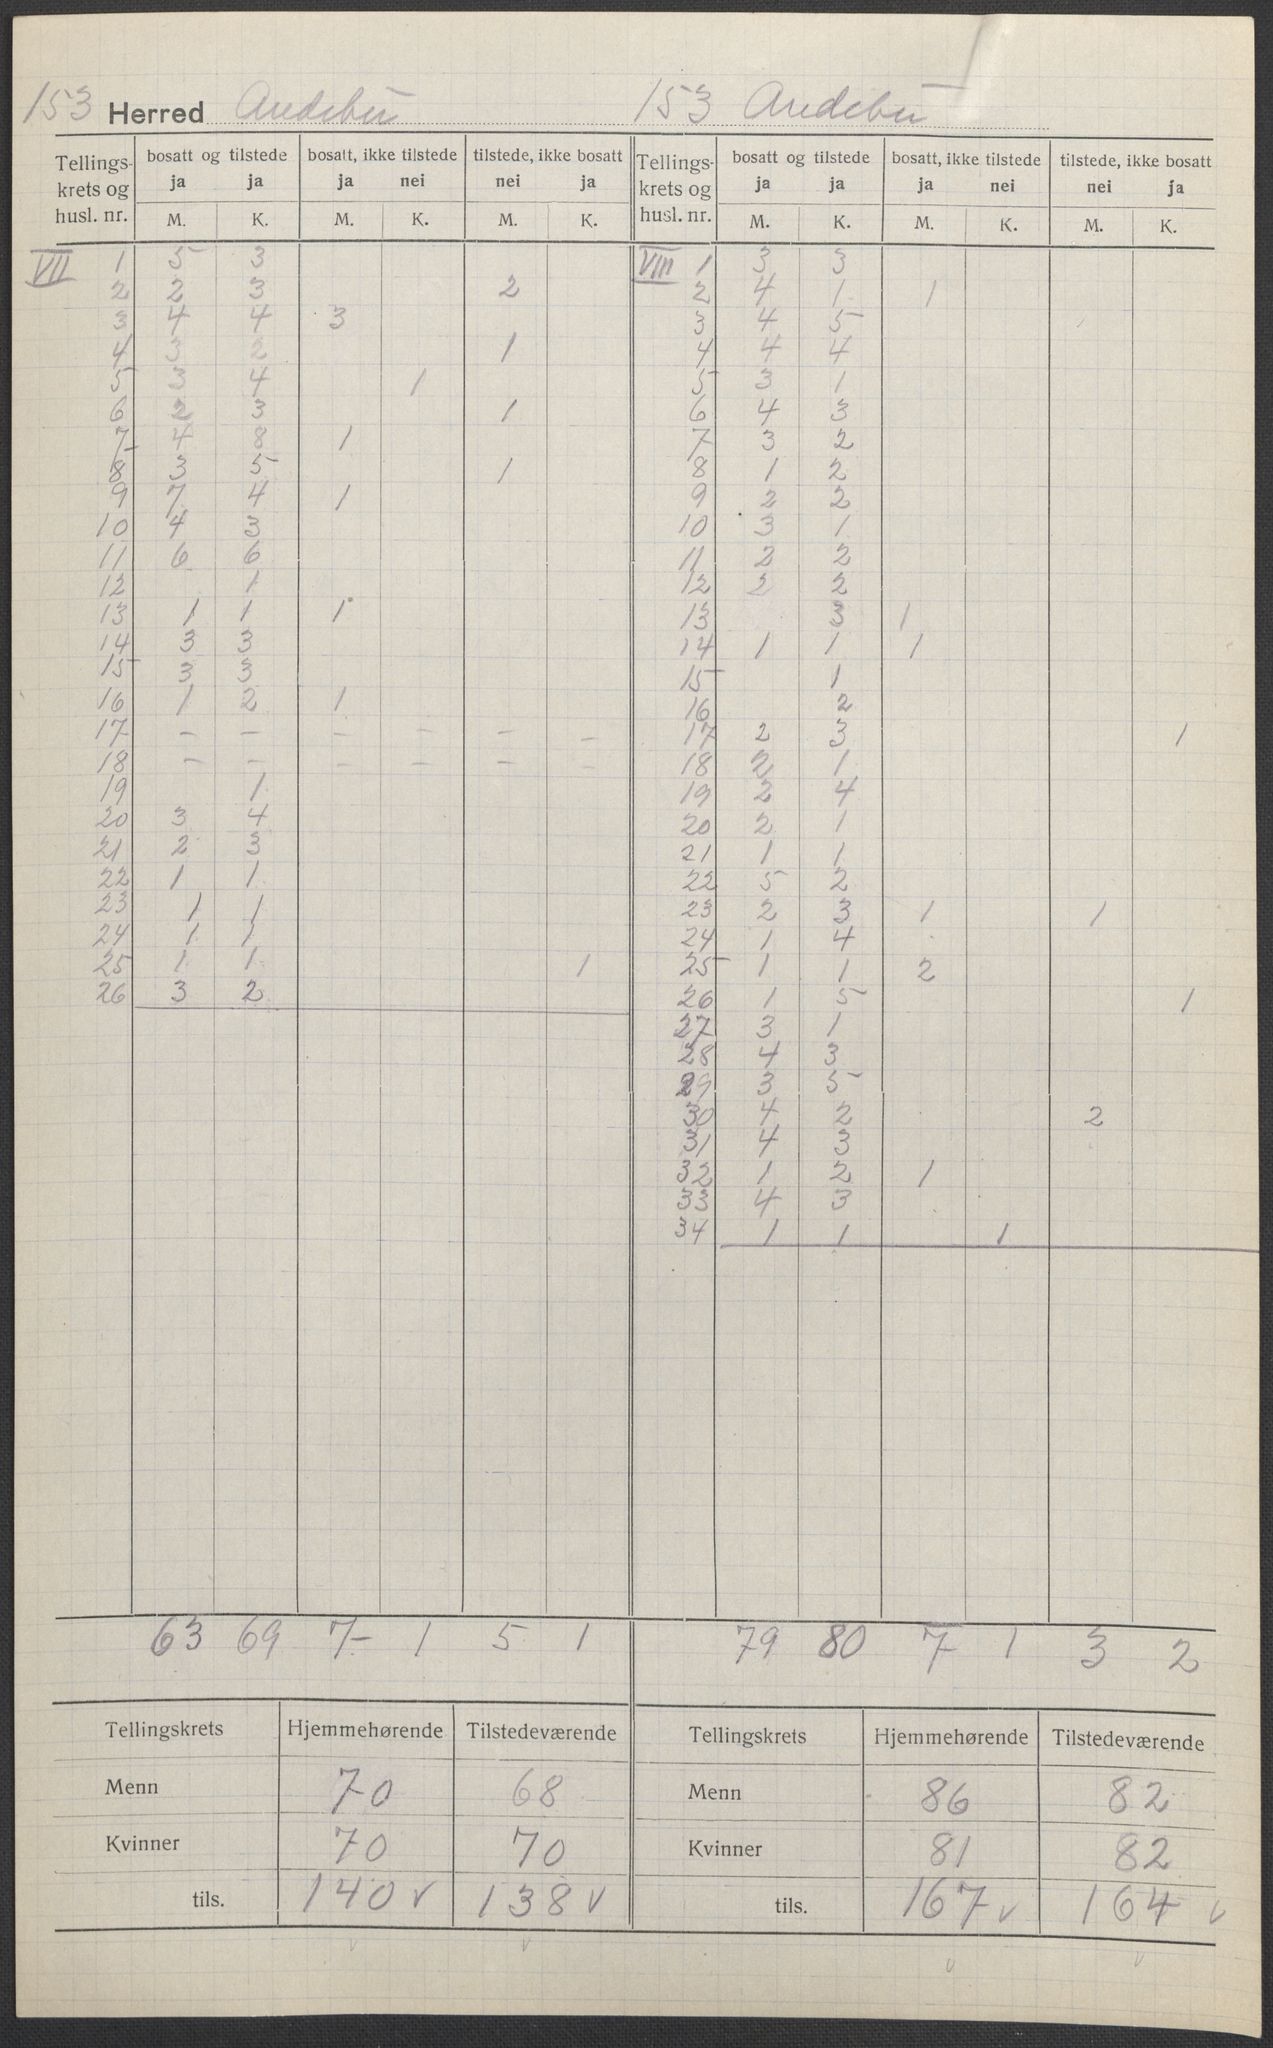 153 Herred Andebu 153 Andebu
Tellings- krets og husl. nr. bosatt og tilstede bosatt, ikke tilstede tilstede, ikke bosatt Tellings- krets og husl. nr. bosatt og tilstede bosatt, ikke tilstede tilstede, ikke bosatt
ja ja ja nei nei ja ja ja ja nei nei ja
M. K. M. K. M. K. M. K. M. K. M. K.
VII 1 5 3 VIII 1 3 3
2 2 3 2 2 4 1 1
3 4 4 3 3 4 5
4 3 2 1 4 4 4
5 3 4 1 5 3 1
6 2 3 1 6 4 3
7 4 8 1 7 3 2
8 3 5 1 8 1 2
9 7 4 1 9 2 2
10 4 3 10 3 1
11 6 6 11 2 2
12 1 12 2 2
13 1 1 1 13 3 1
14 3 3 14 1 1 1
15 3 3 15 1
16 1 2 1 16 2
17 – – – – – – 17 2 3 1
18 – – – – – – 18 2 1
19 1 19 2 4
20 3 4 20 2 1
21 2 3 21 1 1
22 1 1 22 5 2
23 1 1 23 2 3 1 1
24 1 1 24 1 4
25 1 1 1 25 1 1 2
26 3 2 26 1 5 1
27 3 1
28 4 3
29 3 5
30 4 2 2
31 4 3
32 1 2 1
33 4 3
34 1 1 1
63 69 7 1 5 1 79 80 7 1 3 2
Tellingskrets Hjemmehørende Tilstedeværende Tellingskrets Hjemmehørende Tilstedeværende
Menn 70 68 Menn 86 82
Kvinner 70 70 Kvinner 81 82
tils. 140 v 138 v tils. 167 v 164 v